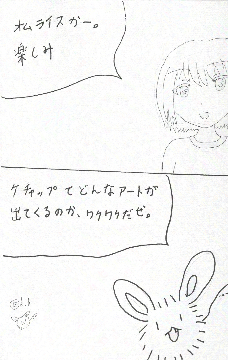 オムライスかー。
楽しみ
ケチャップでどんなアートが
出てくるのか、ワクワクだぜ。